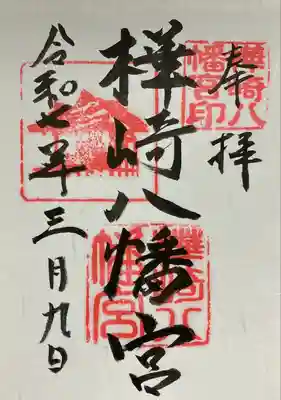 奉拝
樺崎八幡宮
樺崎八幡宮印
樺崎八幡宮
令和七年三月九日